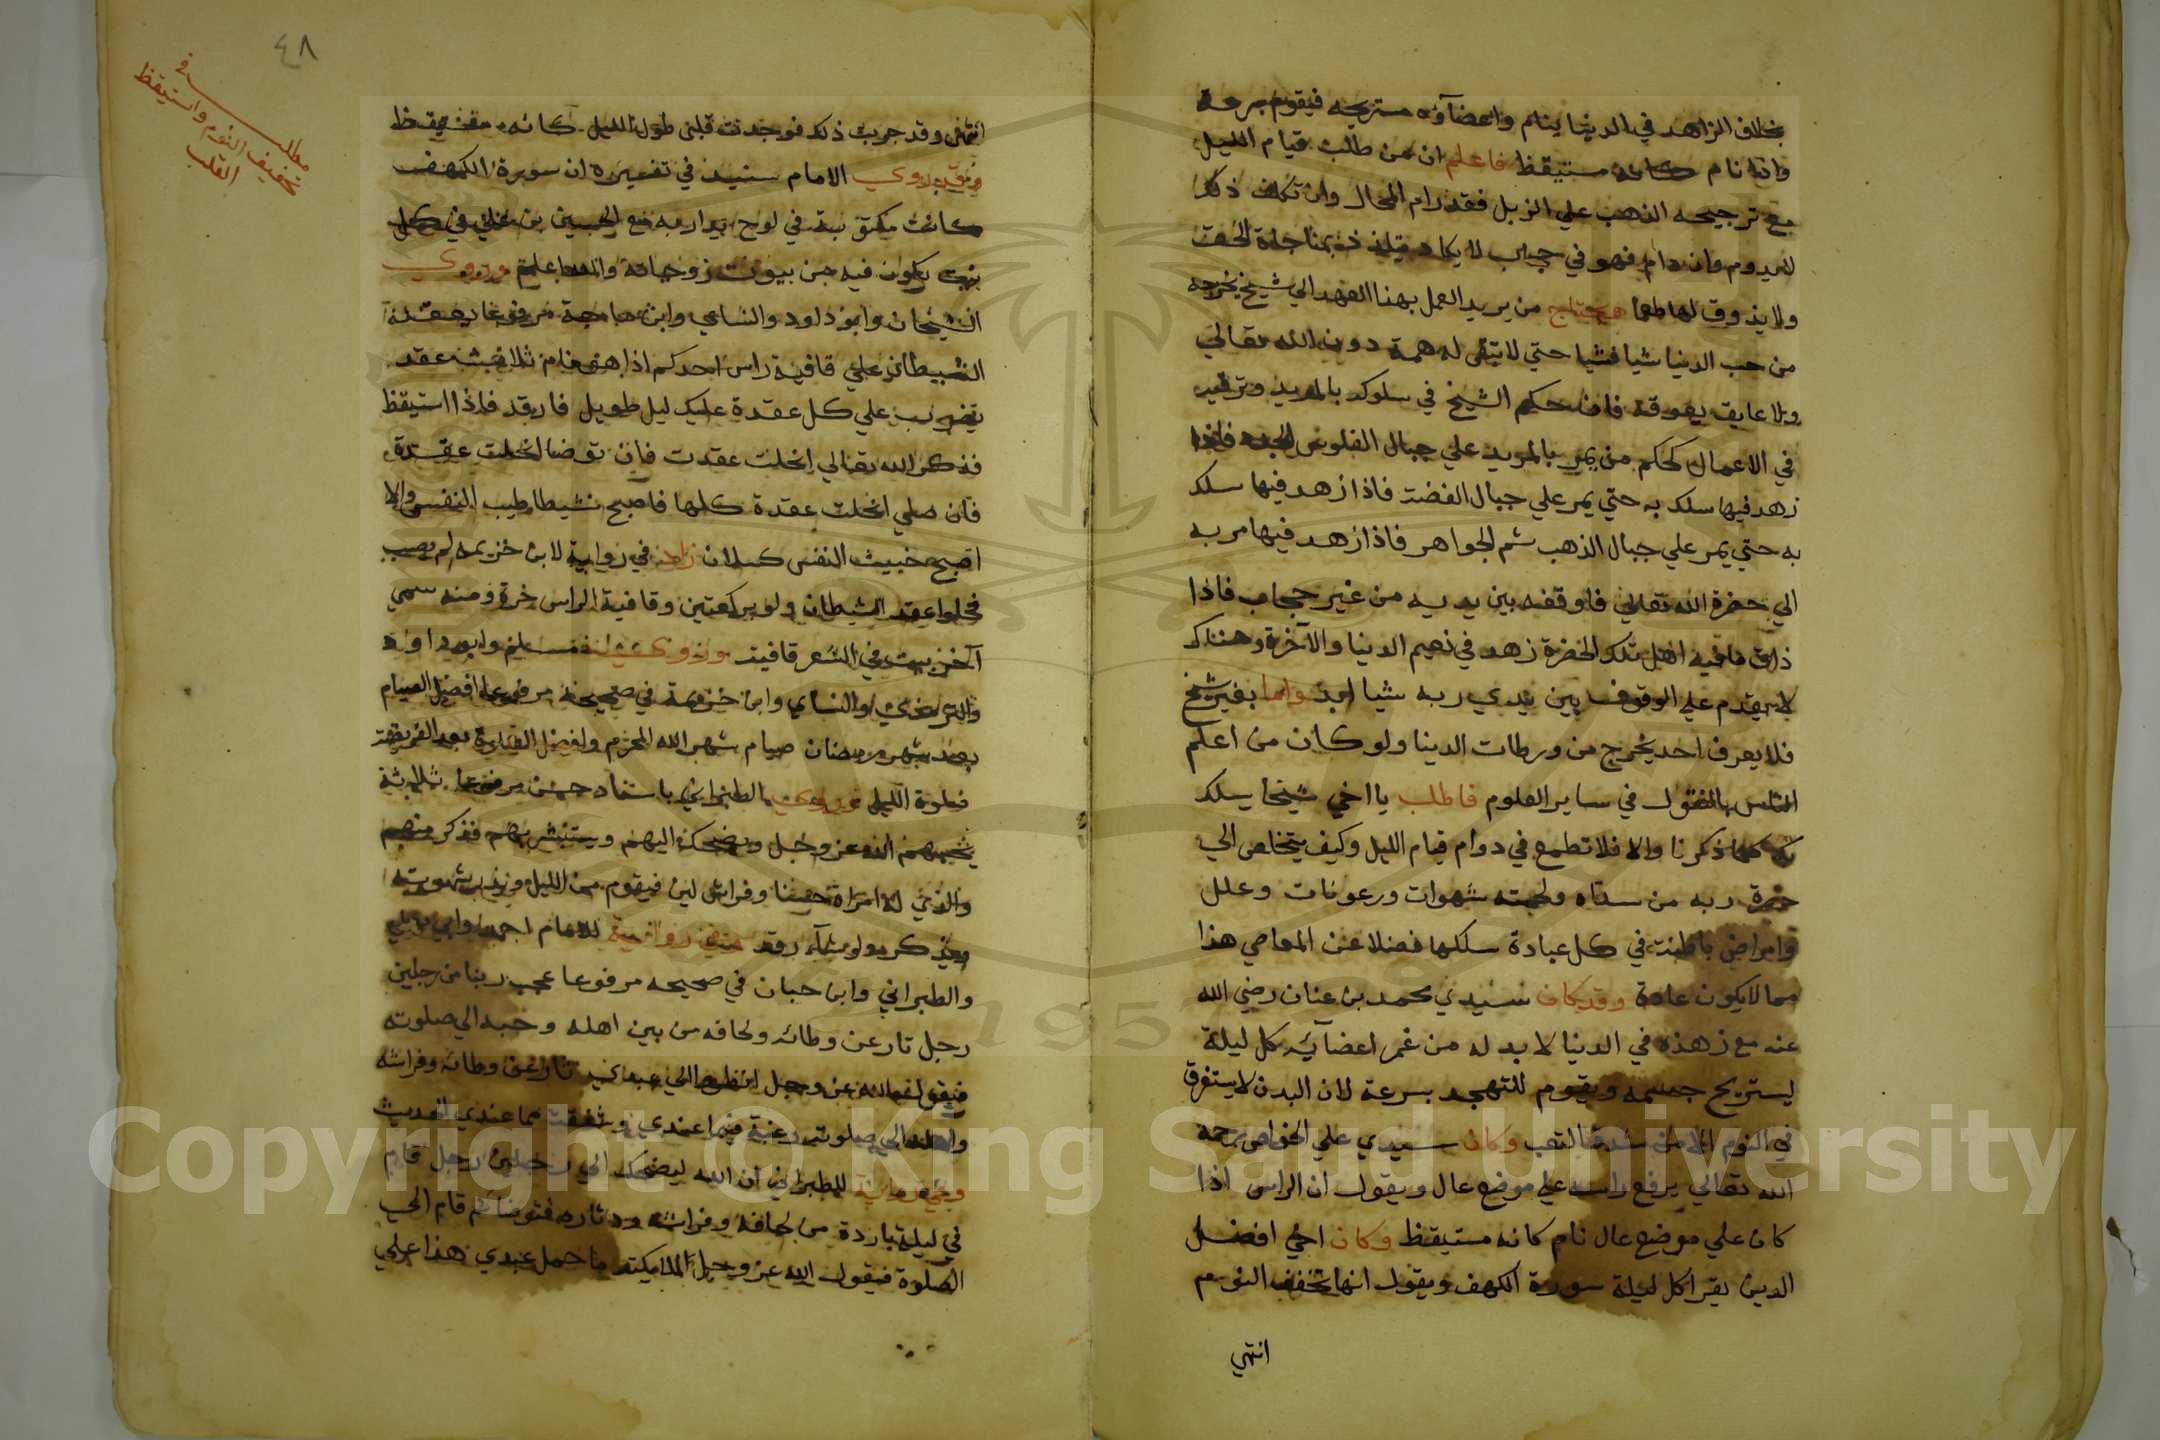 بخلاف الزاهد في الدنيا ينام واعضآؤه مستريحه فيقوم بسرعة
واذا نام كانه مستيقظ فاعلم ان من طلب قيام الليل
مع ترجيحه الذهب علي الزبل فقد رام المحال وان تكلف ذلك
لايدوم وان دام فهو في حجاب لا يكاد يتلذذ بمناجاة الحق
ولا يذوق لها طعما فيحتاج من يريد العمل بهذا العهد الي شيخ يخرجه
من حب الدنيا شيا فشيا حتي لا تبقي له همة دون الله تعالي
ولا عايق يعوقه فان حكم الشيخ في سلوكه بالمريد وترقيه
في الاعمال كحكم من يمر بالمريد علي جبال الفلوس الجدد فاذا
زهد فيها سلك به حتي يمر علي جبال الفضة فاذا زهد فيها سلك
به حتي يمر علي جبال الذهب ثم الجواهر فاذا زهد فيها مر به
الي حضرة الله تعالي فاوقفه بين يديه من غير حجاب فاذا
ذاق ما فيه اهل تلك الحضرة زهد في نعيم الدنيا والآخرة وهناك
لا يقدم علي الوقوف بين يدي ربه شيا ابدا واما بغير شيخ
فلا يعرف احد يخرج من ورطات الدينا ولو كان من اعلم
الناس بالنقول في ساير العلوم فاطلب يا اخي شيخا يسلك
بك كما ذكرنا والا فلا تطمع في دوام قيام الليل وكيف يتخلص الي
حضرة ربه من سداه ولحمته شهوات ورعونات وعلل
وامراض باطنة في كل عبادة سلكها فضلا عن المعاصي هذا
مما لا يكون عادة وقد كان سيدي محمد بن عنان رضي الله
عنه مع زهذه في الدنيا لا بد له من غمر اعضآيه كل ليلة
ليستريح جسمه ويقوم للتهجد بسرعة لان البدن لا يستغرق
في النوم الا من شدة التعب وكان سيدي علي الخواص رحمه
الله تعالي يرفع راسه علي موضع عال ويقول ان الراس اذا
كان علي موضع عال نام كانه مستيقظ وكان اخي افضل
الدين يقرا كل ليلة سورة الكهف ويقول انها تخفف النوم
انتهي
٤٨
مطلب في
تخفيف النوم واستيقظ
القلب
انتهي وقد جربت ذلك فوجدت قلبي طول الليل كانه مقفيقظ
وقد روي الامام سنيد في تفسيره ان سورة الكهف
كانت مكتوبة في لوح يدار به مع الحسين بن علي في كل
بيت يكون فيه من بيوت زوجاته والله اعلم وروي
الشيخان وابو داود والنساي وابن ماجة مرفوعا يعقد
الشيطان علي قافية راس احدكم اذا هو نام ثلاث عقد
يضرب علي كل عقدة عليك ليل طويل فارقد فاذا استيقظ
فذكر الله تعالي انحلت عقدت فان توضا انحلت عقدة
فان صلي انحلت عقدة كلها فاصبح نشيطا طيب النفس والا
اصبح خبيث النفس كسلان زاد في رواية لابن خزيمه لم يصب
فحلوا عقد الشيطان ولو بركعتين وقافية الراس خرة ومنه سمي
آخر بيت في الشعر قافية وروي مسلم وابو داود
والترمذي والنساي وابن خزيمة في صحيحه مرفوعا افضل الصيام
بعد شهر رمضان صيام شهر الله المحرم وافضل الصلوة بعد الفريضة
صلوة الليل وروي الطبراني باسناد حسن مرفوعا ثلاثة
يحبهم الله عز وجل ويضحك اليهم ويستبشر بهم فذكر منهم
والذي له امراة حسنا وفراش لين فيقوم من الليل ويذر شهوته
ويذكره ولو شآء رقد وفي رواية للامام احمد وابي يعلي
والطبراني وابن حبان في صحيحه مرفوعا عجب ربنا من رجلين
رجل ثار عن وطائه ولحافه من بين اهله وحبه الي صلوته
فيقول الله عز وجل انظروا الي عبدي ثار عن وطائه وفراشه
واهله الي صلوته رغبة فيما عندي وشفقة مما عندي الحديث
وفي رواية للطبراني ان الله ليضحك الي رجلين رجل قام
في ليلة باردة من لحافه وفراشه ودثاره فتوضا ثم قام الي
الصلوة فيقول الله عز وجل لملايكته ما حمل عبدي هذا علي
Copyright © King Saud University
1957